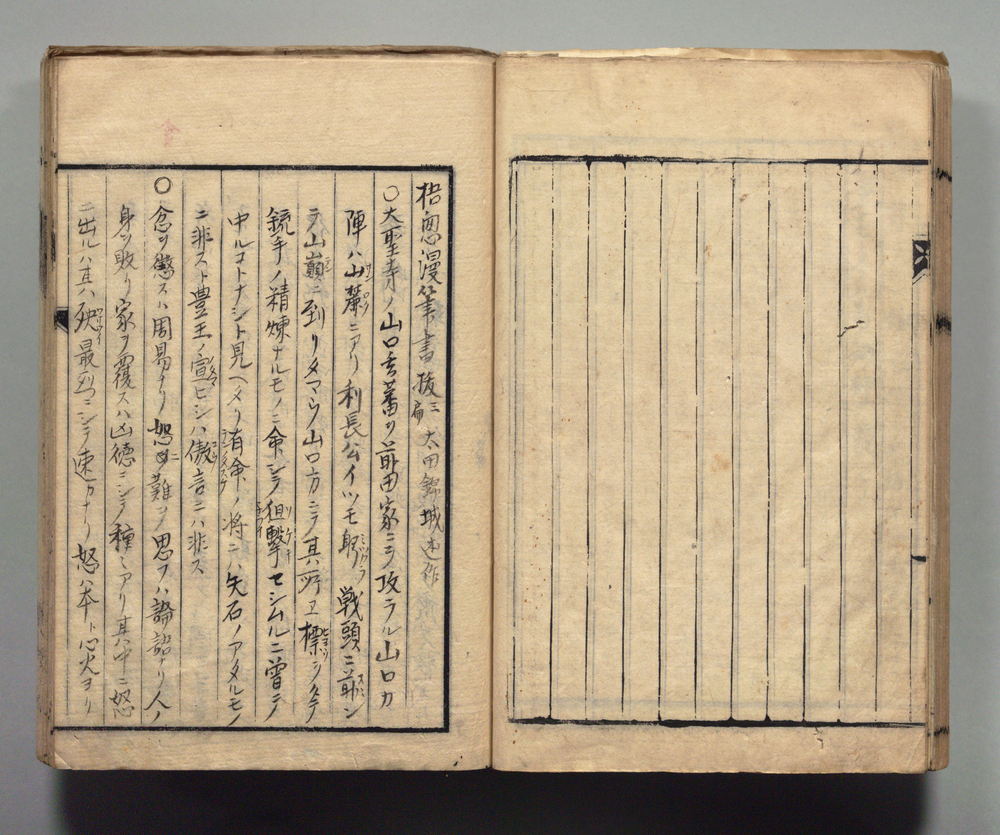 梧窓漫筆書抜三扁 太田錦城述作
○大聖寺ノ山口玄蕃ヲ前田家ニテ攻ラル山口カ
陣ハ山麓ニアリ利長公イツモ躬ラ戦頭ニ前ン
テ山巓ニ到リタマウ山口方ニテ其所ヱ標シタテ
銃手ノ精煉ナルモノニ命シテ狙撃セシムルニ曾テ
中ルコトナシト見ヘタリ有命ノ将ニハ矢石ノアタルモノ
ニ非スト豊王ノ宣ヒシハ傲言ニハ非ス
○忿ヲ懲スハ周易ナリ怒ニ難ヲ思フハ論語ナリ人ノ
身ヲ敗リ家ヲ覆スハ凶徳ニシテ種々アリ其中ニ怒
ニ出ルハ其殃最烈ニシテ速カナリ怒ハ本ト心火ヨリ